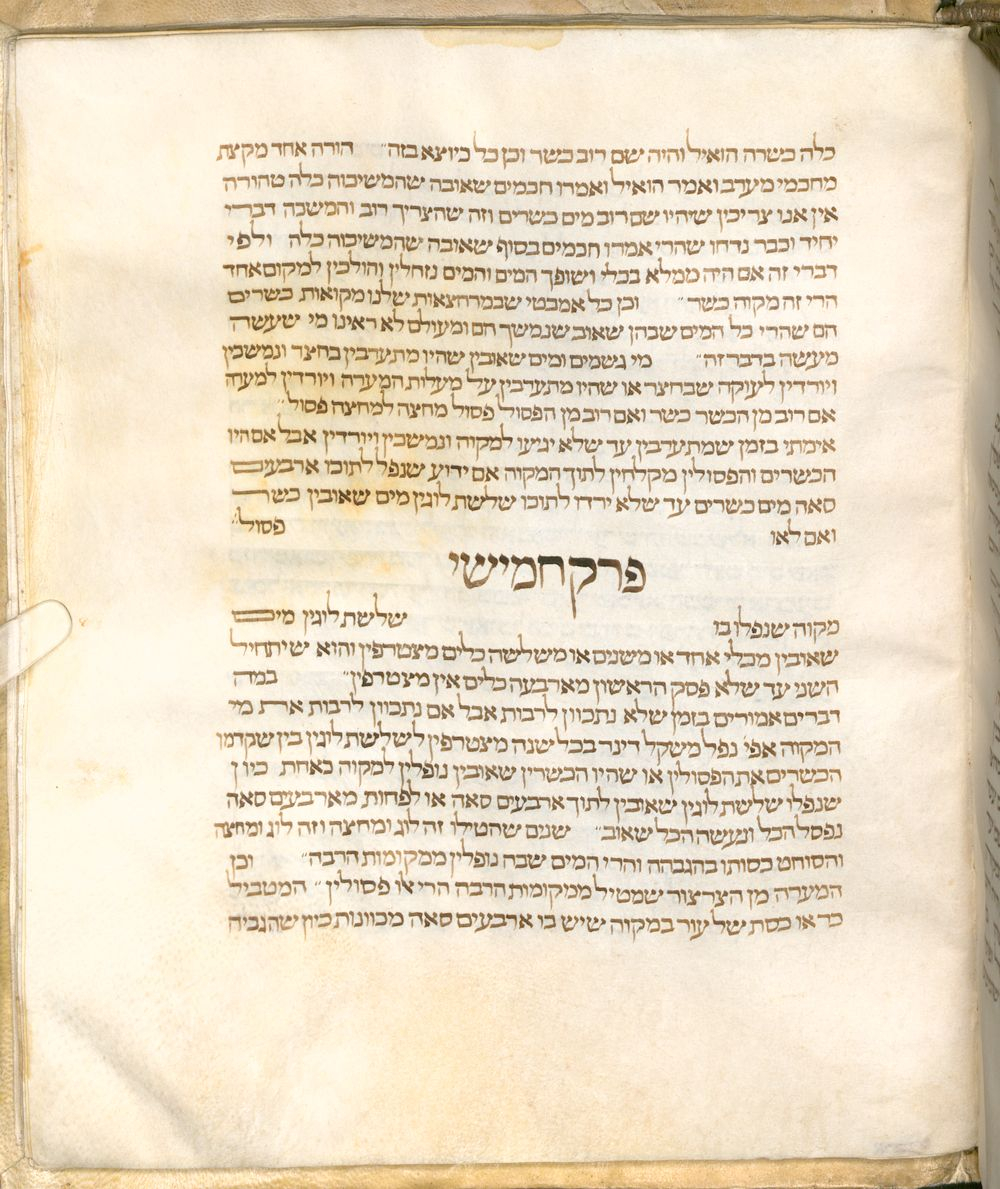 כלה כשרה הואיל והיה שם רוב כשר וכן כל כיוצא בזה״ הורה אחד מקצת
מחכמי מערב ואמר הואיל ואמרו חכמים שאובה שהמשיכוה כלה טהורה
אין אנו צריכין שיהיו שם רוב מים כשרים וזה שהצריך רוב והמשכה דברי
יחיד וכבר נדחו שהרי אמרו חכמים בסוף שאובה שהמשיכוה כלה ולפי
דברי זה אם היה ממלא בכלי ושופך המים והמים נזחלין והולכין למקום אחד
הרי זה מקוה כשר״ וכן כל אמבטי שבמרחצאות שלנו מקואות כשרים
הם שהרי כל המים שבהן שאוב שנמשך הם ומעולם לא ראינו מי שעשה
מעשה בדבר זה״ מי גשמים ומים שאובין שהיו מתערבין בחצר ונמשכין
ויורדין לעוקה שבחצר או שהיו מתערבין על מעלות המערה ויורדין למערה
אם רוב מן הכשר כשר ואם רוב מן הפסול פסול מחצה למחצה פסול״
אימתי בזמן שמתערבין עד שלא יגיעו למקוה ונמשכין ויורדין אבל אם היו
הכשרים והפסולין מקלחין לתוך המקוה אם ידוע שנפל לתוכו ארבעים
סאה מים כשרים עד שלא ירדו לתוכו שלשת לוגין מים שאובין כשר
ואם לאו פסול״
פרק חמישי
מקוה שנפלו בו שלשת לוגין מים
שאובין מכלי אחד או משנים או משלשה כלים מצטרפין והוא שיתחיל
השני עד שלא פסק הראשון מארבעה כלים אין מצטרפין״ במה
דברים אמורים בזמן שלא נתכוון לרבות אבל אם נתכוון לרבות את מי
המקוה אפי׳ נפל משקל דינר בכל שנה מצטרפין לשלשת לוגין בין שקדמו
הכשרים את הפסולין או שהיו הכשרין שאובין נופלין למקוה כאחת כיון
שנפלו שלשת לוגין שאובין לתוך ארבעים סאה או לפחות מארבעים סאה
נפסל הכל ונעשה הכל שאוב״ שנים שהטילו זה לוג ומחצה וזה לוג ומחצה
והסוחט כסותו בהגבהה והרי המים שבה נופלין ממקומות הרבה״ וכן
המערה מן הצרצור שמטיל ממקומות הרבה הרי או פסולין״ המטביל
כר או כסת של עור במקוה שיש בו ארבעים סאה מכוונות כיון שהגביה